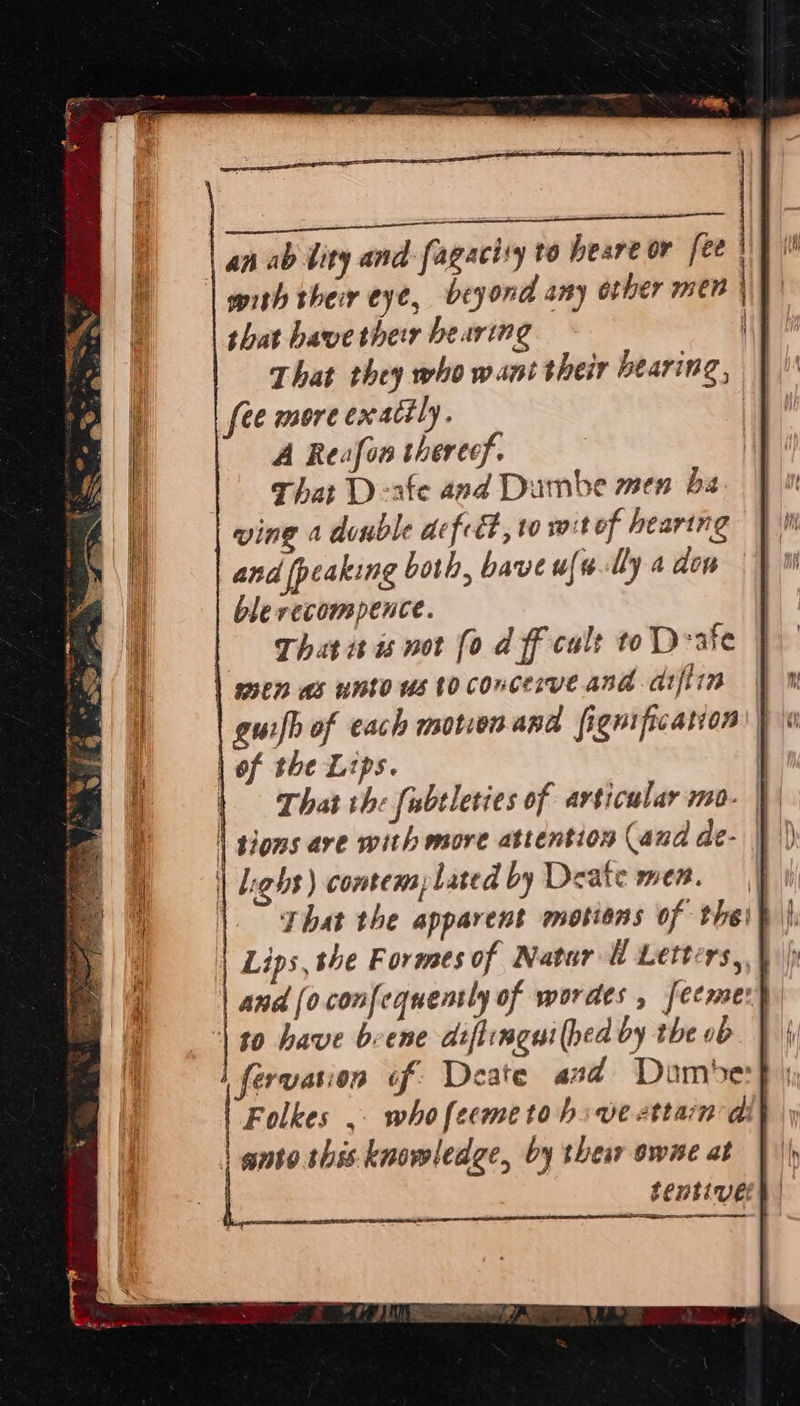 an ab lity and ſagacity to heare or ſee
with their eye, beyond any other men
that have their hearing
That they who want their hearing,
ſee more exactly.
A Reaſon thereof.
That Deafe and Dumbe men ha
ving a double defect, to wit of hearing
and ſpeaking both, have uſually a dou
ble recompence.
That it is not ſo difficult to Deafe
men as unto us to conceive and diſtin
guiſh of each motion and ſignification
of the Lips.
That the ſubtleties of articular mo-
tions are with more attention (and de-
light) contemplated by Deafe men.
That the apparent motions of thei
Lips, the Formes of Naturall Letters,
and ſo conſequently of wordes, ſeeme
to have beene diſtinguiſhed by the ob
ſervation of Deafe and Dumbe
Folkes, who ſeeme to have attain'd
unto this knowledge, by their owne at
tentive